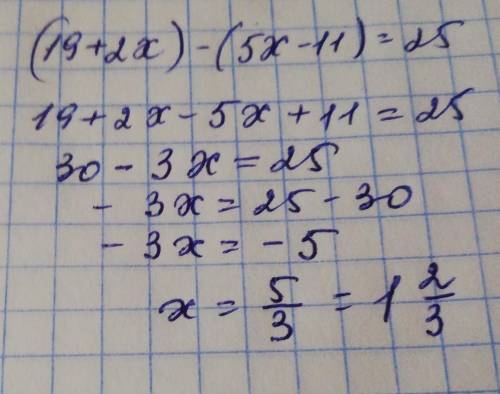 (19+2x)-(5x-11)=25
19+2x-5x+11=25
30-3x=25
-3x=25-30
-3x=-5
x=5/3=1 2/3